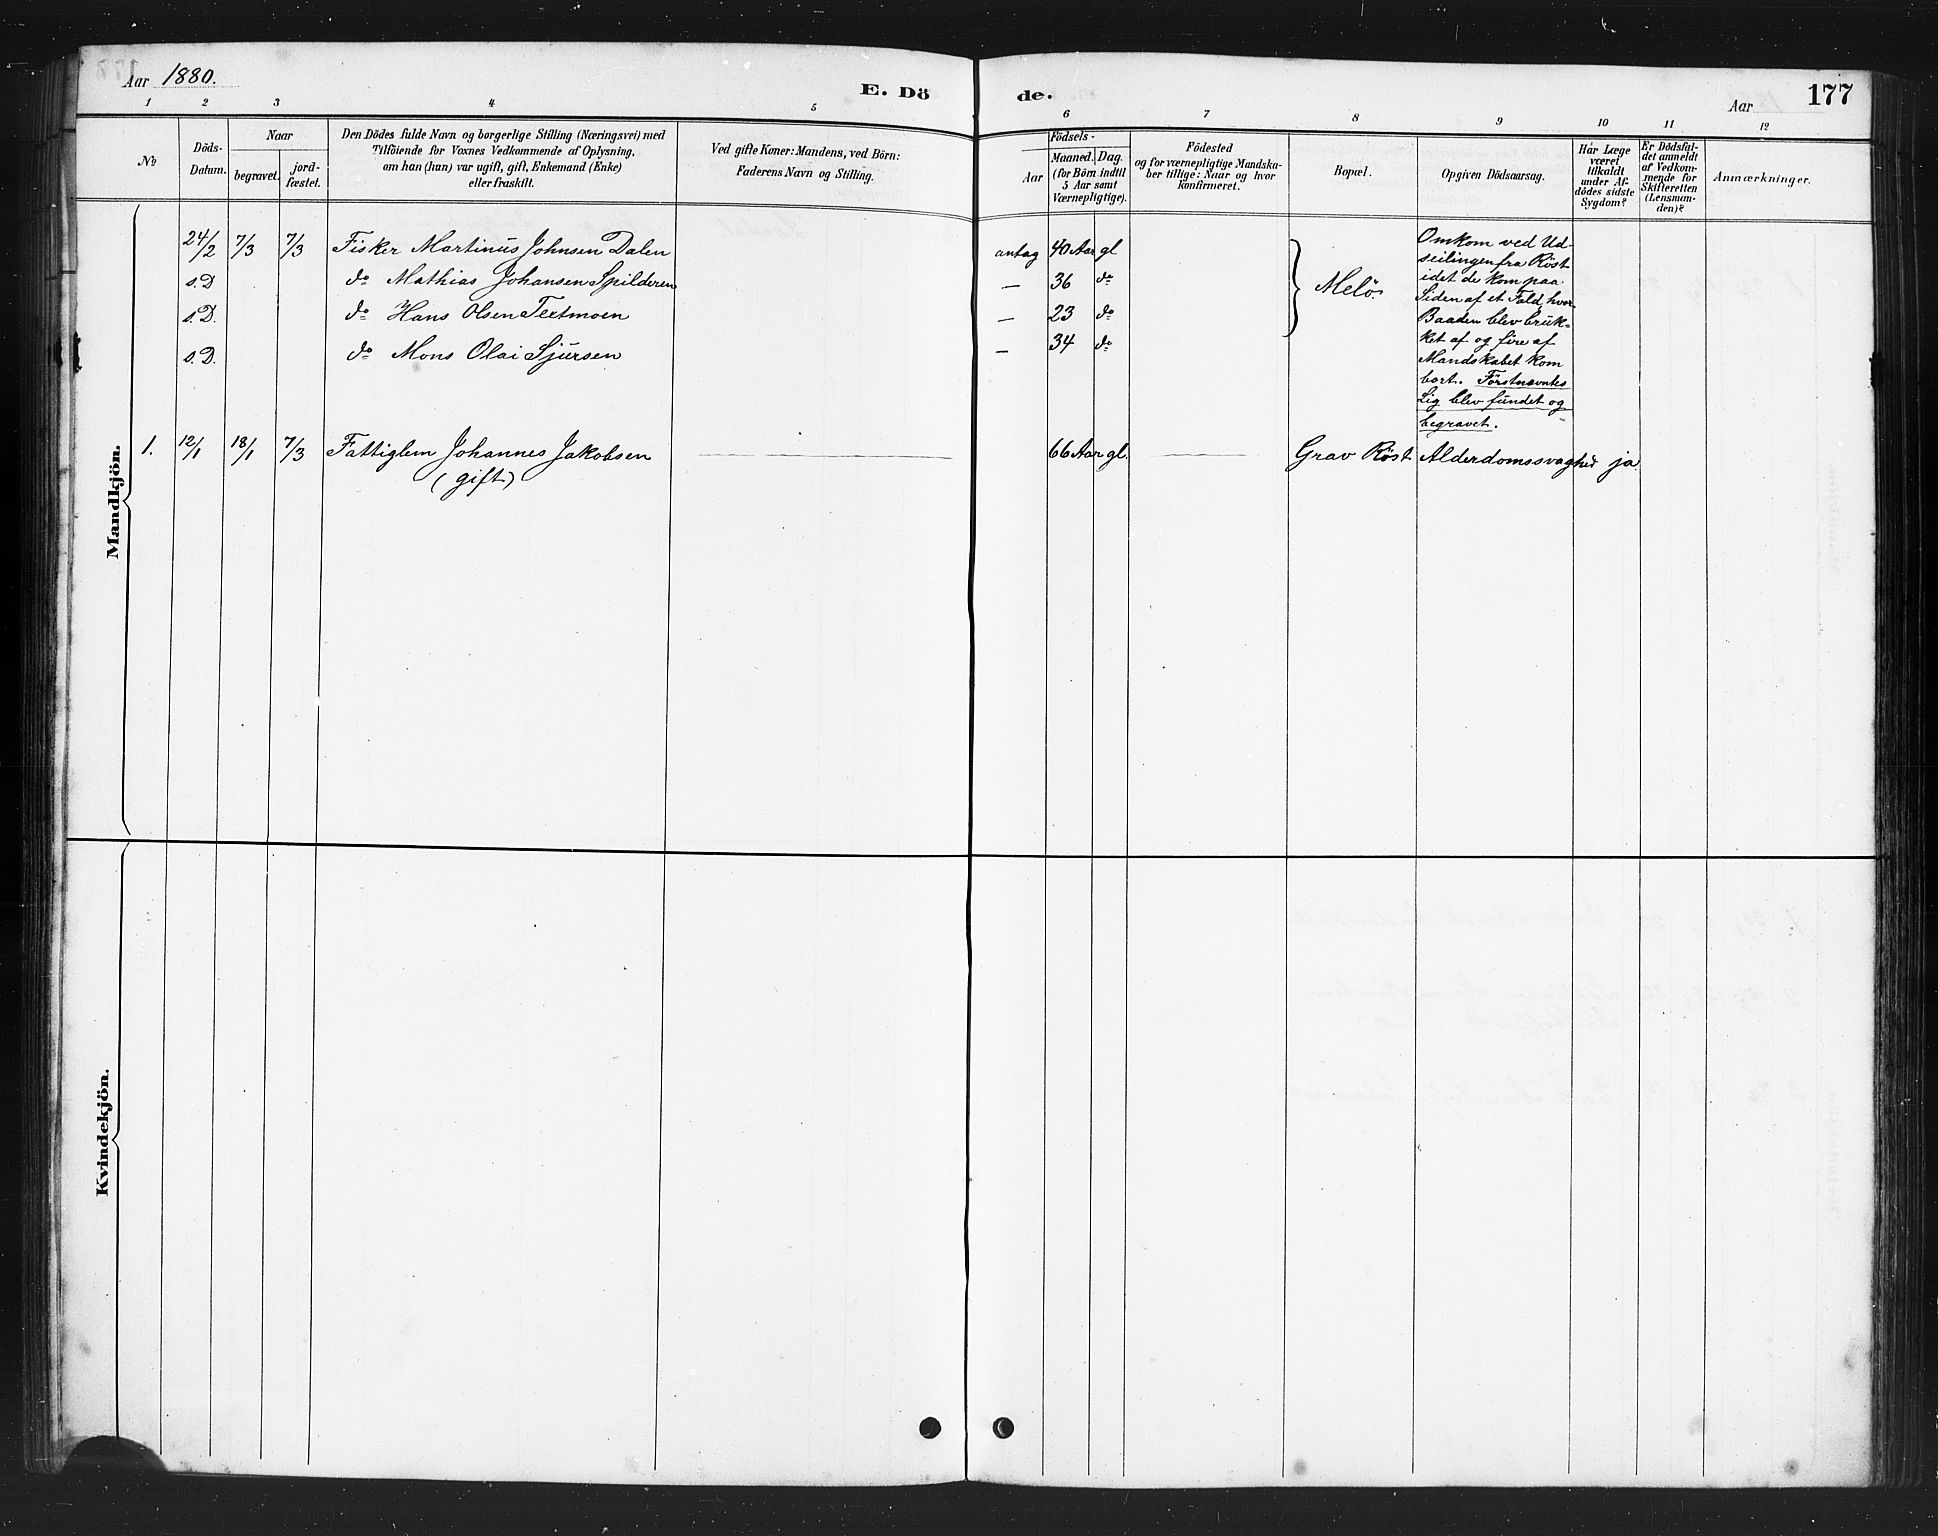 Aar 1880.
E. Dö
de.
Aar
177
1 2 3 4 5 6 7 8 9 10 11 12
No
Döds-
Datum.
Naar
begravet.
jord-
fæstet.
Den Dödes fulde Navn og borgerlige Stilling (Næringsvei) med
Tilföiende for Voxnes Vedkommende af Oplysning,
om han (hun) var ugift, gift, Enkemand (Enke)
eller fraskilt.
Ved gifte Koner: Mandens, ved Börn:
Faderens Navn og Stilling.
Födsels-
Aar
Maaned. Dag.
(for Börn indtil
5 Aar samt
Værnepligtige).
Födested
og for værnepligtige Mandska-
ber tillige: Naar og hvor
konfirmeret.
Bopæl.
Opgiven Dödsaarsag.
Har Læge
været
tilkaldt
under Af-
dödes sidste
Sygdom?
Er Dödsfal-
det anmeldt
af Vedkom-
mende for
Skifteretten
(Lensman-
den)?
Anmærkninger.
Mandkjön.
24/2 7/3 7/3 Fisker Martinus Johnsen Dalen antag 40 Aar gl
s.D do Mathias Johansen Spilderen — 36 do
s.D. do Hans Olsen Textmoen — 23 do
s.D. do Mons Olai Sjursen — 34 do
Melö
Omkom ved Ud-
seilingen fra Röst
idet de kom paa
Siden af et Fald, hvor
Baaden blev bruk-
ket af og fire af
Mandskabet kom
bort. Förstnævntes
Lig blev fundet og
begravet.
1. 12/1 18/1 7/3 Fattiglem Johannes Jakobsen 66 Aar gl. Grav Röst Alderdomssvaghed ja
(gift)
Kvindekjön.